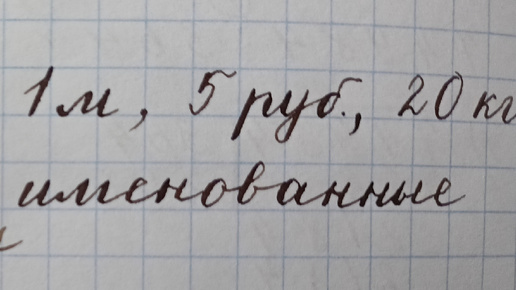 1 м, 5 руб., 20 кг
именованные